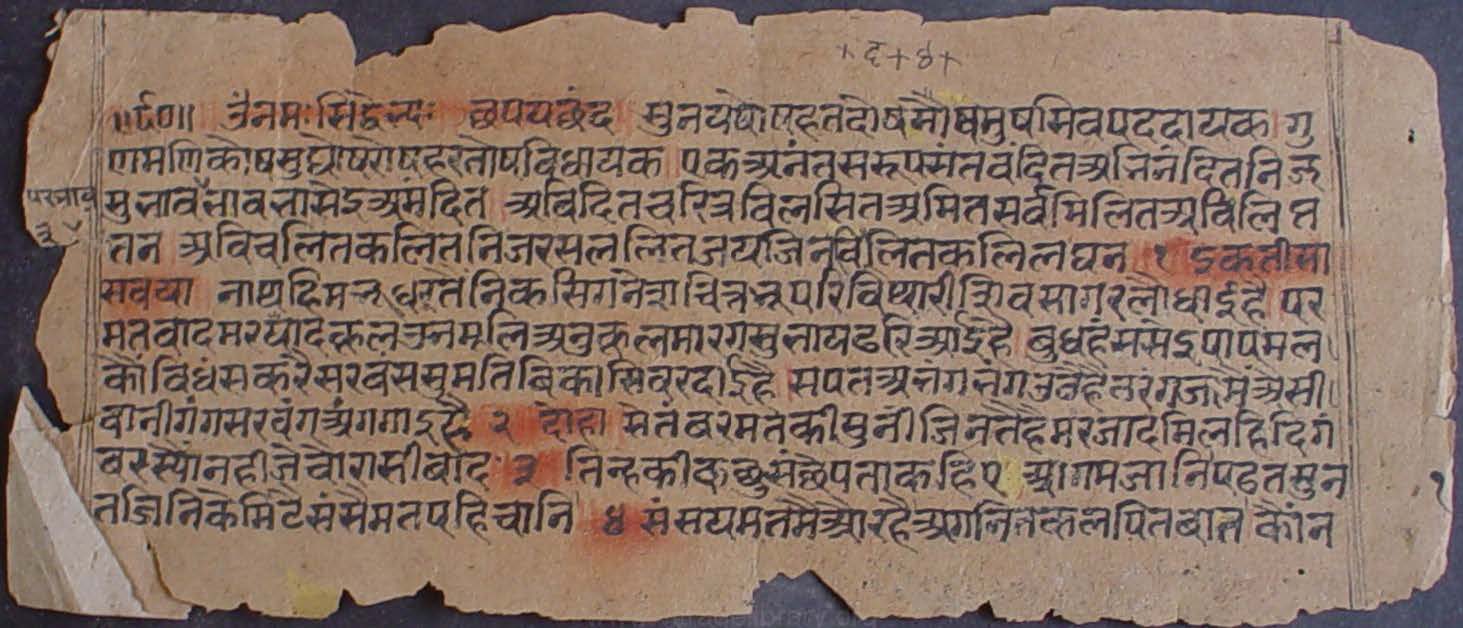 + ६ + ४ +
॥८०॥ ॐ नमः सिद्धेभ्यः छपय छंद सुनय पोषहत दोष मोषमुष सिवपददायक । गु
णमनिकोष सुघोष रोषहर तोषविधायक एक अनंत सरूप संत वंदित अभिनंदित निज
सुभाव भाव भावि अविदित चरित्र विलसित अमित सर्व मिलित अविलिप्त
तन अविचलित कलित निजरस ललित जय जिन विलित कलिल घन १ इकतीसा
सवया नाथ हिमभूधरतें निकसि गनेश चित्त भूपरि विथारी शिवसागरलौं धाई है पर
मतवाद मरयाद कूल उनमूलि अनुकूल मारग सुभाय ढरि आई है बुध हंस सेइ पापमल
कौं विधंस करै सरवंस सुमति विकासि वरदाई है सपत अभंग भंग उठैहै तरंग जामैं ऐसी
वानी गंग सरवंग अंग गाई है २ दोहा स्वेतंबर मत की सुनी जिनतैहै मरजाद मिलहि दिगं
बरस्यौं नही जे चौरासी बाद ३ तिन्हकी कछु संछेपता कहिए आगम जानि पढत सुन
त जिनिके मिटे संसै मत पहिचानि ४ संसय मत मैं और है अगनित कलपित बात कौन
१